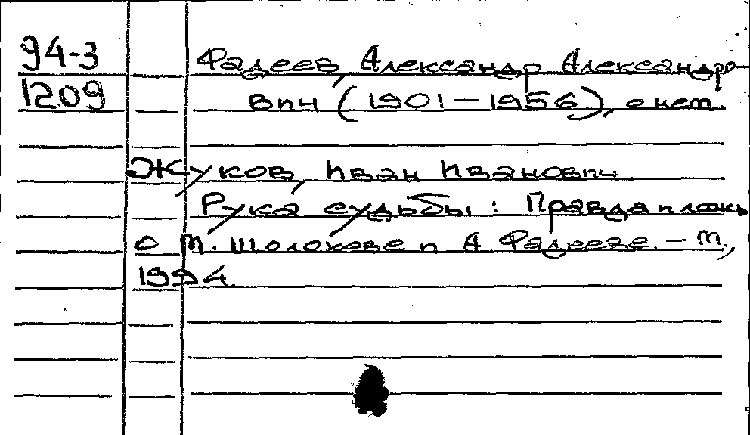 94-3 Фадеев, Александр Александро-
1209 вич (1901-1956), о нем.
Жуков, Иван Иванович
Рука судьбы: Правда и ложь
о М. Шолохове и А. Фадееве. - М.,
1994.